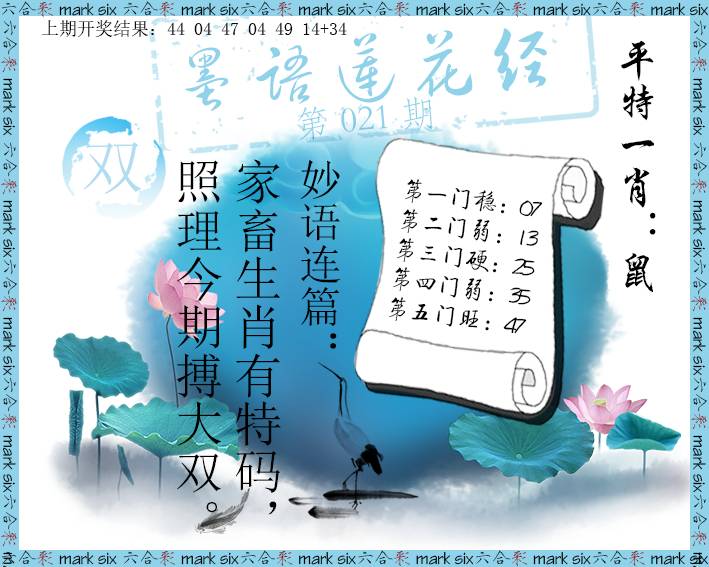 上期开奖结果：44 04 47 04 49 14+34
墨语莲花经
第 021 期
双
平特一肖：鼠
妙语连篇：
家畜生肖有特码，
照理今期搏大双。
第一门稳：07
第二门弱：13
第三门硬：25
第四门弱：35
第五门旺：47
mark six 六合彩 mark six 六合彩 mark six 六合彩 mark six 六合彩 mark six 六合彩